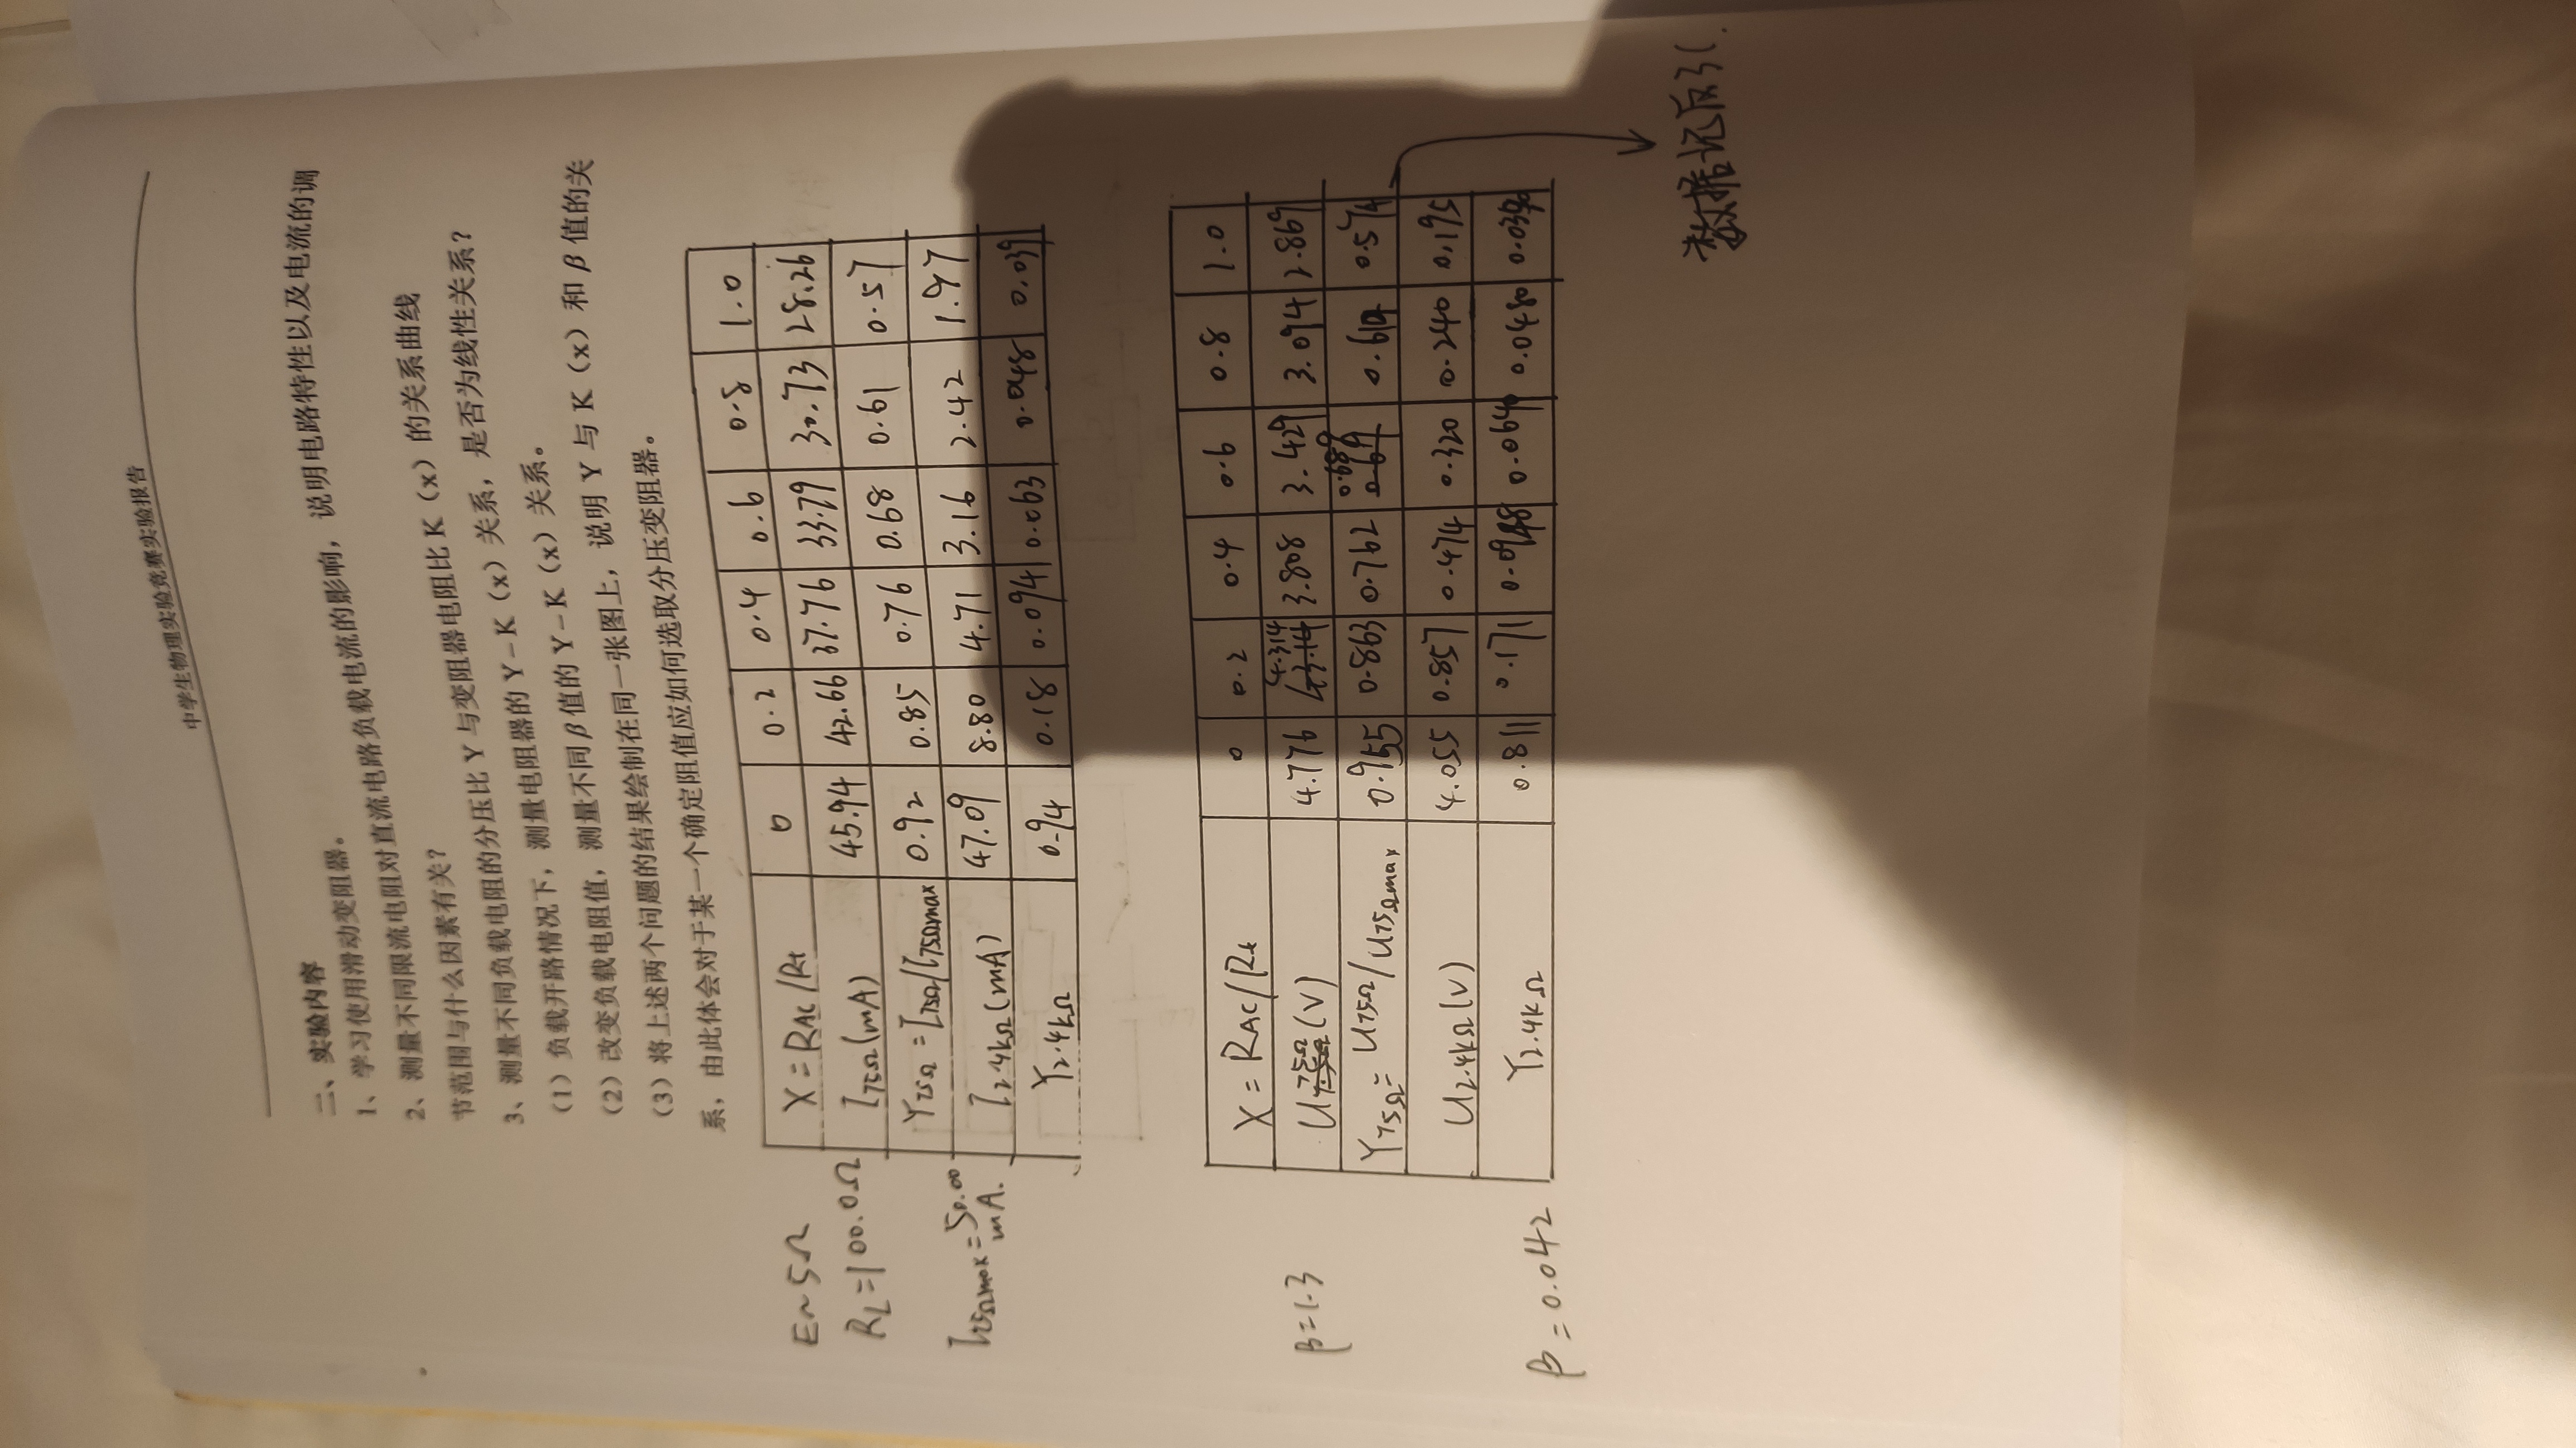 中学生物理实验竞赛实验报告
二、实验内容
1、学习使用滑动变阻器。
2、测量不同限流电阻对直流电路负载电流的影响，说明电路特性以及电流的调
节范围与什么因素有关？
3、测量不同负载电阻的分压比 Y 与变阻器电阻比 K（x）的关系曲线
（1）负载开路情况下，测量电阻器的 Y-K（x）关系，是否为线性关系？
（2）改变负载电阻值，测量不同 β 值的 Y-K（x）关系。
（3）将上述两个问题的结果绘制在同一张图上，说明 Y 与 K（x）和 β 值的关
系，由此体会对于某一个确定阻值应如何选取分压变阻器。
E~5Ω
RL=100.0Ω
I75Ωmax=50.00
mA.
X=RAC/Rt 0 0.2 0.4 0.6 0.8 1.0
I75Ω(mA) 45.94 42.66 37.76 33.79 30.73 28.26
Y75Ω=I75Ω/I75Ωmax 0.92 0.85 0.76 0.68 0.61 0.57
I2.4kΩ(mA) 47.09 8.80 4.71 3.16 2.42 1.97
Y2.4kΩ 0.94 0.18 0.094 0.063 0.048 0.039
β=1.3
β=0.042
X=RAC/Rt 0 0.2 0.4 0.6 0.8 1.0
U75Ω(V) 4.776 4.314 3.808 3.429 3.094 2.869
Y75Ω=U75Ω/U75Ωmax 0.955 0.863 0.762 0.689 0.619 0.574
U2.4kΩ(V) 4.055 0.857 0.474 0.320 0.240 0.195
Y2.4kΩ 0.811 0.171 0.0948 0.0640 0.0480
数据记反了(.